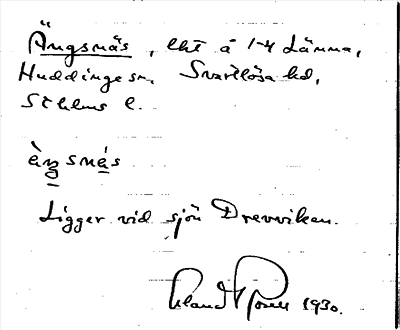 Ängsnäs, lht å 1-4 Länna,
Huddinge sn. Svartlösa hd,
Sthlms l.
àŋsnä́s
Ligger vid sjön Drevviken.
1930.